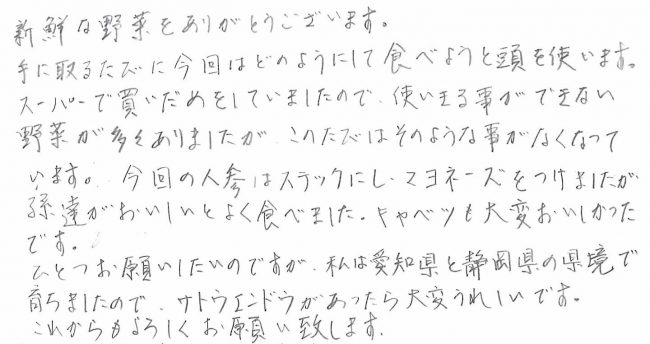 新鮮な野菜をありがとうございます。
手に取るたびに今回はどのようにして食べようと頭を使います。
スーパーで買いだめをしていましたので、使いきる事ができない
野菜が多くありましたが、このたびはそのような事がなくなって
います。今回の人参はスティックにし、マヨネーズをつけましたが
孫達がおいしいとよく食べました。キャベツも大変おいしかった
です。
ひとつお願いしたいのですが、私は愛知県と静岡県の県境で
育ちましたので、サトウエンドウがあったら大変うれしいです。
これからもよろしくお願い致します。